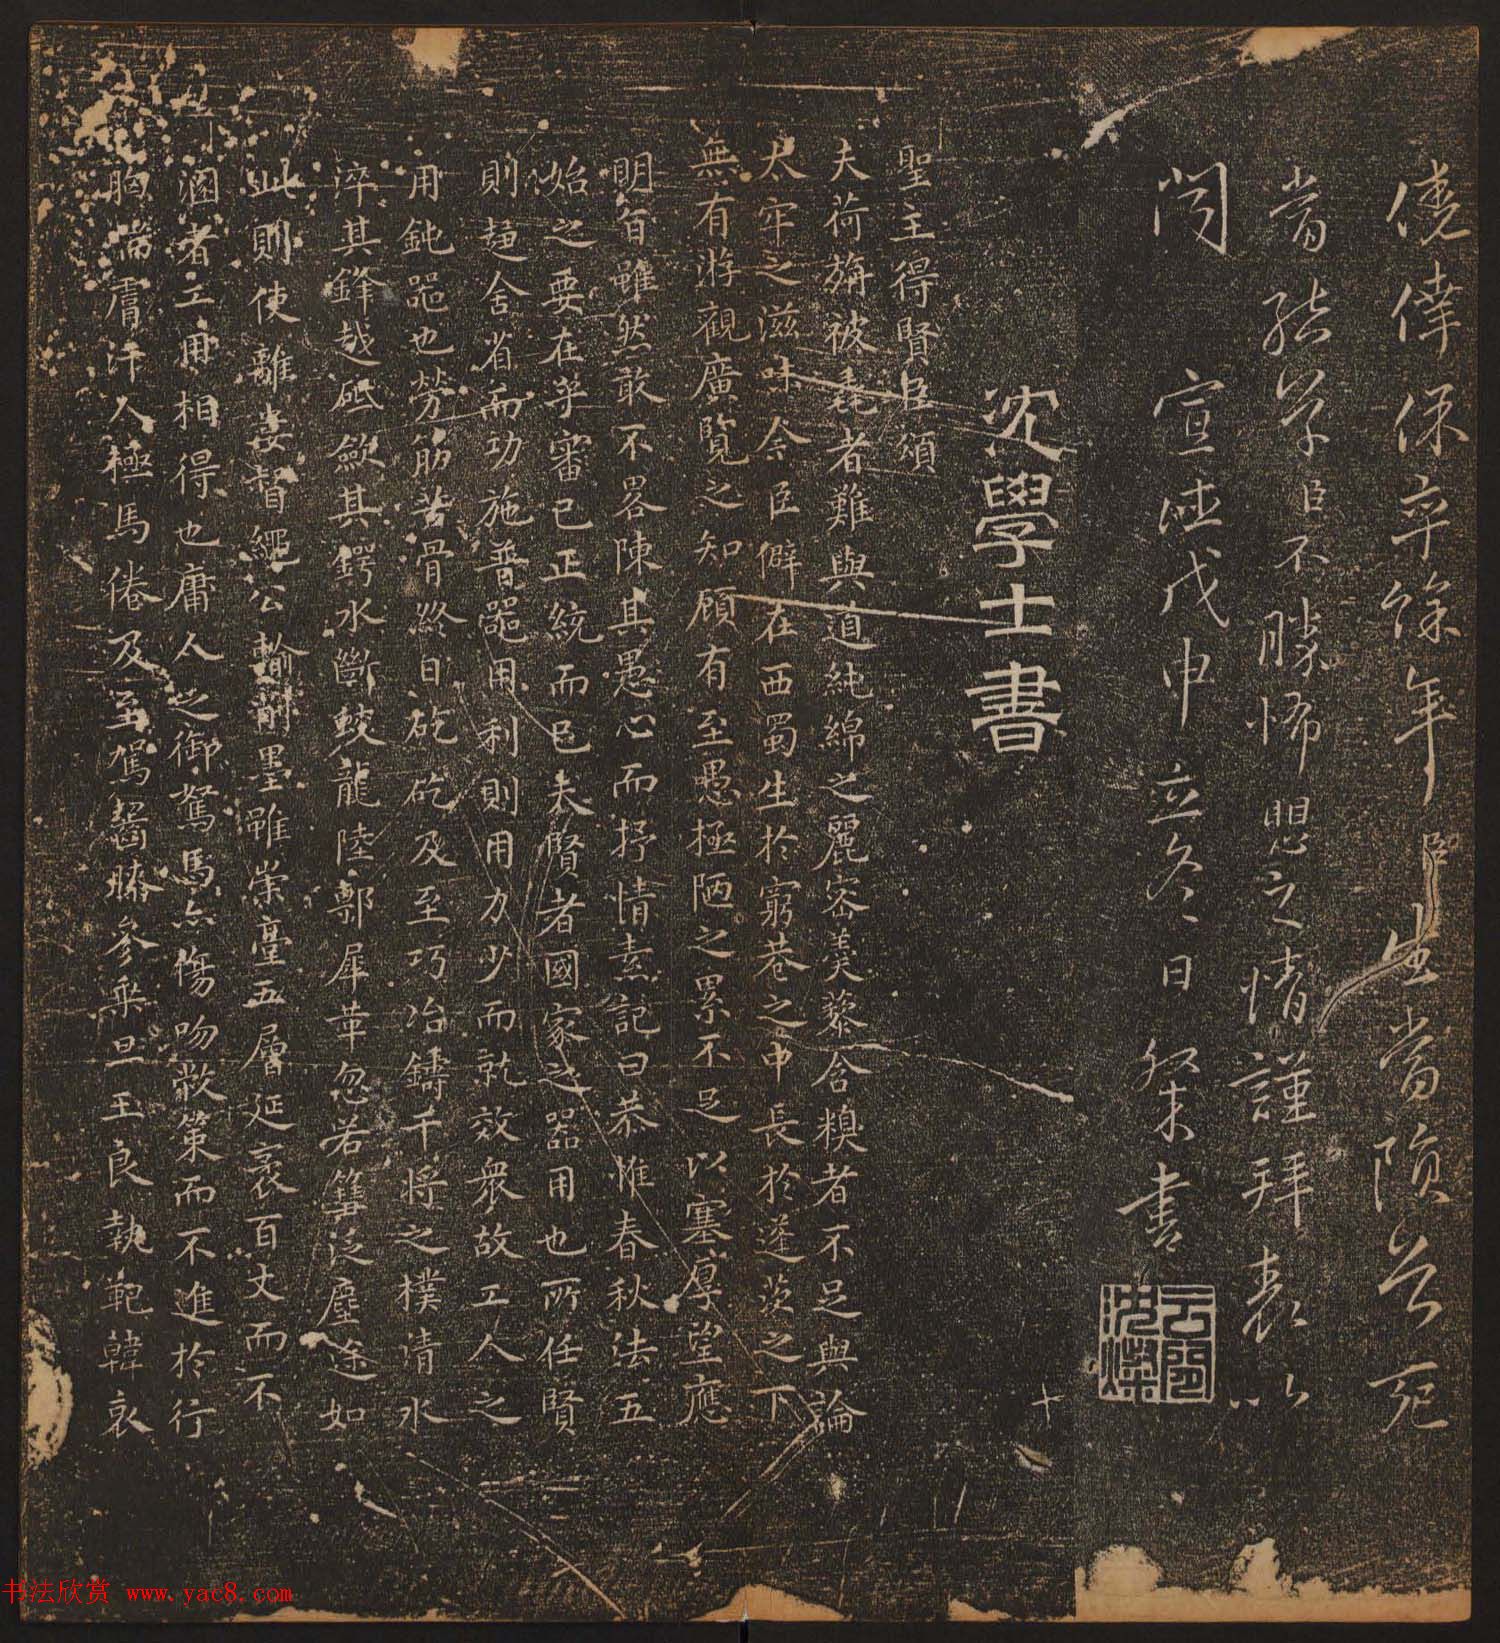 僥倖保卒餘年臣生當隕首死
當結草臣不勝怖思之情謹拜表以
聞
宣德戊申立冬日粲書
沈學士書
聖主得賢臣頌
夫荷旃被毳者難與道純綿之麗密羮藜含糗者不足與論
太牢之滋味今臣僻在西蜀生於窮巷之中長於蓬茨之下
無有游觀廣覽之知顧有至愚極陋之累不足以塞厚望應
明旨雖然敢不畧陳其愚心而抒情素記曰恭惟春秋法五
始之要在乎審己正統而已夫賢者國家之器用也所任賢
則趨舍省而功施普器用利則用力少而就效衆故工人之
用鈍器也勞筋苦骨終日矻矻及至巧冶鑄干將之樸清水
淬其鋒越砥斂其鍔水斷蛟龍陸剸犀革忽若篲泛塵塗如
此則使離婁督繩公輸削墨雖崇臺五層延袤百丈而不
溷者工用相得也庸人之御駑馬亦傷吻敝策而不進於行
胸喘膚汗人極馬倦及至駕齧膝參乘旦王良執範韓哀